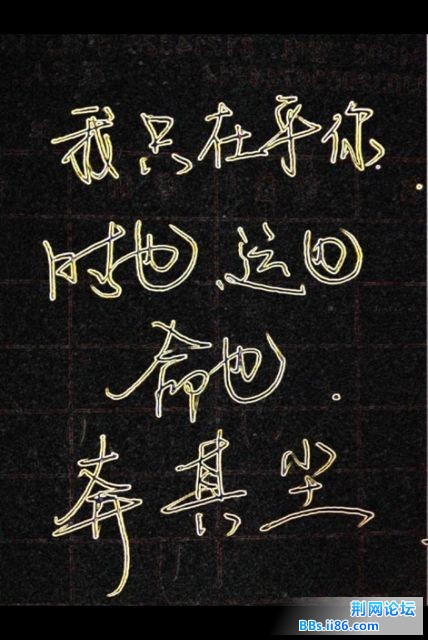 我只在乎你.
时也.运也
命也.
奔其尘
荆网论坛
BBs.ii86.com